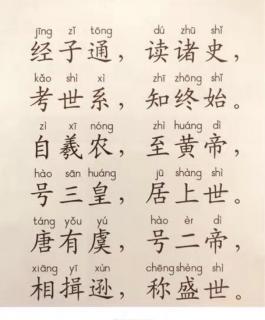 jīng zǐ tōng dú zhū shǐ
经子通，读诸史，
kǎo shì xì zhī zhōng shǐ
考世系，知终始。
zì xī nóng zhì huáng dì
自羲农，至黄帝，
hào sān huáng jū shàng shì
号三皇，居上世。
táng yǒu yú hào èr dì
唐有虞，号二帝，
xiāng yī xùn chēng shèng shì
相揖逊，称盛世。